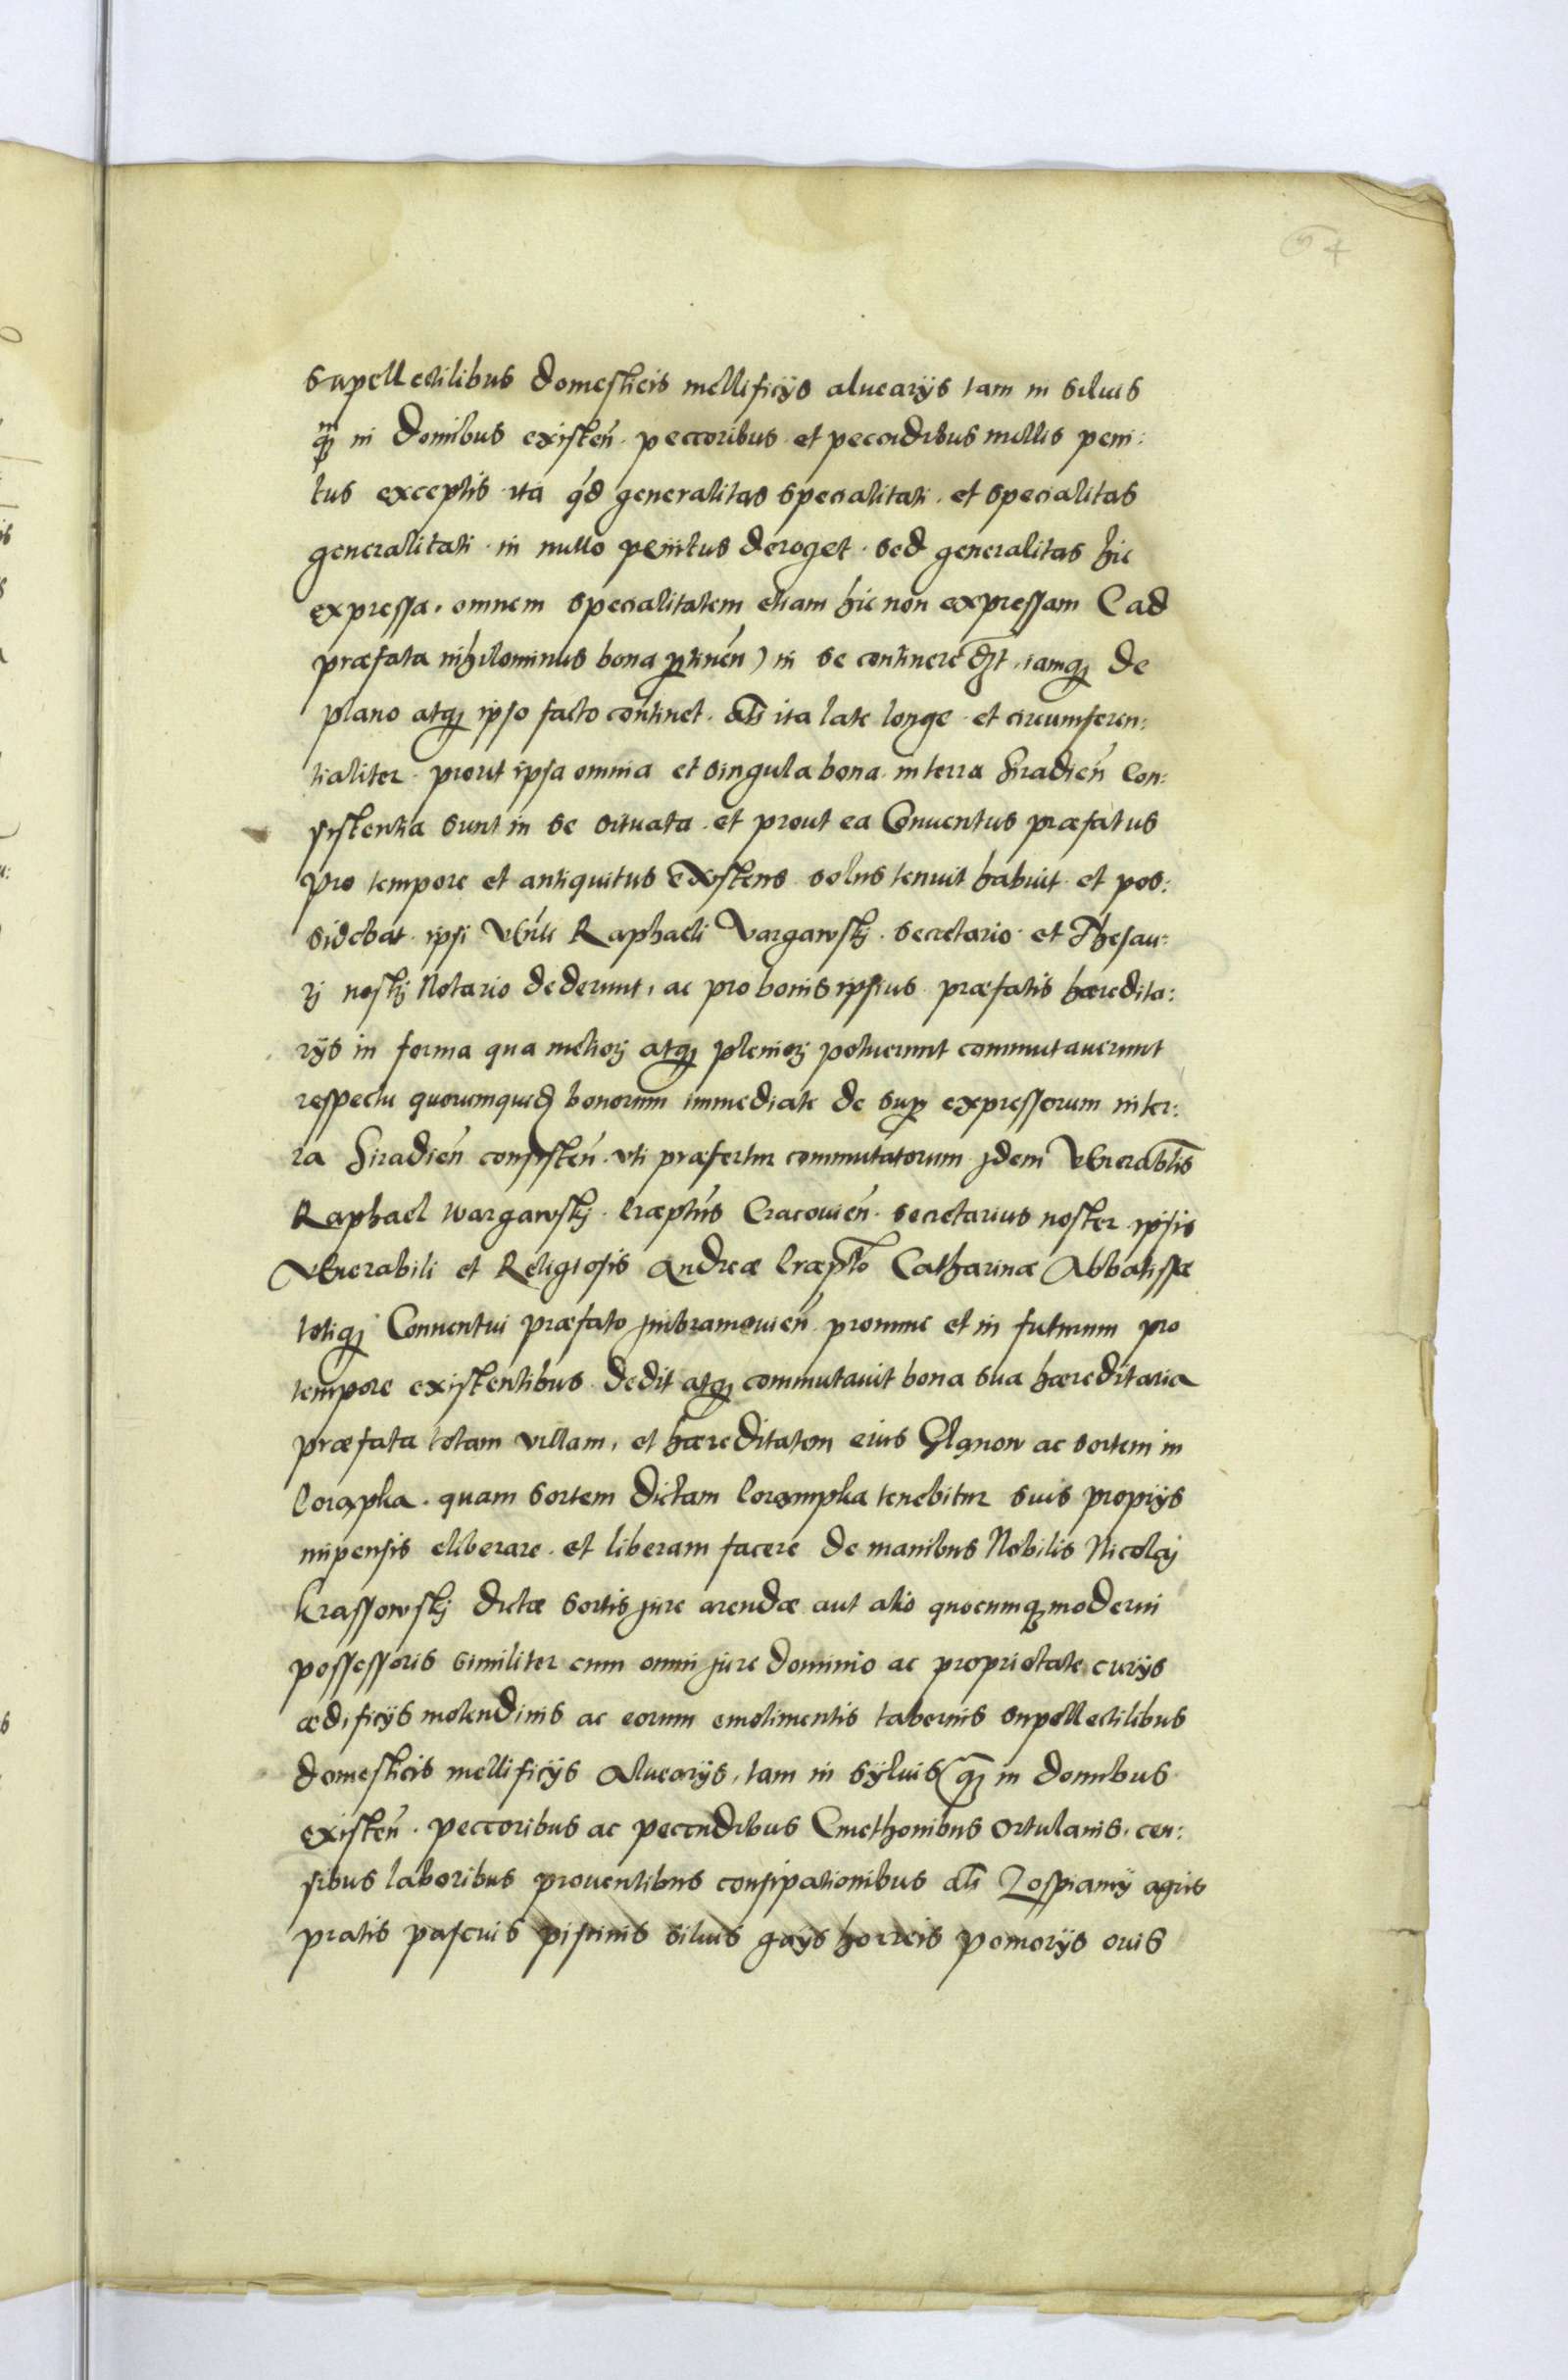 54
supellectilibus domesticis mellificÿs aluearÿs tam in siluis
qȝ in domibus existeñ. peccoribus et pecudibus nullis peni:
tus exceptis ita qd generalitas specialitati. et specialitas
generalitati in nullo penitus deroget. sed generalitas hic
expressa, omnem specialitatem etiam hic non expressam (ad
præfata nihilominus bona ptineñ) in se continere det, iamqȝ de
plano atqȝ ipso facto continet. als ita late longe et circumferen:
tialiter prout ipsa omnia et singula bona in terra Siradieñ con:
sistentia sunt in se situata. et prout ea Conuentus præfatus
pro tempore et antiquitus existens solus tenuit habuit et pos:
sidebat ipsi Vnli Raphaeli Vargawskj. secretario et Thesau:
rj nostrj Notario dederunt, ac pro bonis ipsius præfatis hæredita:
rÿs in forma qua meliorj atqȝ pleniorj potuerunt commutauerunt
respectu quorumquidȝ bonorum immediate de sup expressorum in ter:
ra Siradieñ consisteñ. vti præfertur commutatorum jdem Vnerablis
Raphael Wargawskj. Præptus Cracouieñ. secretarius noster ipsis
Vnerabili et Religiosis Andreæ Præpto Catharinæ Abbatissæ
totiqȝ Conuentui præfato jmbramouieñ pronunc et in futurum pro
tempore existentibus dedit atqȝ commutauit bona sua hæreditaria
præfata totam villam, et hæreditatem eius Glanow ac sortem in
Porąpka. quam sortem dictam Porąmpka tenebitur suis propÿs
impensis eliberare et liberam facere de manibus Nobilis Nicolaj
Krassowskj dictæ sortis jure arendæ aut alio quocumqȝ moderni
possessoris similiter cum omni jure dominio ac proprietate, curÿs
ædificÿs molendinis ac eorum emolimentis tabernis supellectilibus
domesticis mellificÿs Aluearÿs, tam in sÿluis qȝ in domibus
existeñ. peccoribus ac pecudibus Cmethonibus ortulanis. cen:
sibus laboribus prouentibus consipationibus als Zospiamÿ agris
pratis pascuis piscinis siluis gaÿs horreis pomorÿs ouis